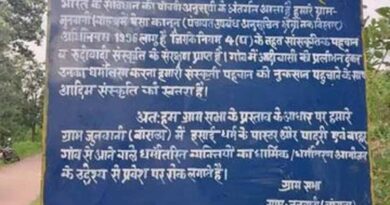 भारत के संविधान की पांचवी अनुसूची के अंतर्गत आता है हमारे ग्राम-
जुनवानी पेसा कानून (पंचायत उपबंध अनुसूचित क्षेत्रों का विस्तार)
अधिनियम 1996 लागू है जिसके नियम 4 (घ) के तहत सांस्कृतिक पहचान
व रूढ़ीवादी संस्कृति के संरक्षण प्राप्त है। गांव में आदीवासी को प्रलोभन देकर
उनका धर्मांतरण करना हमारी संस्कृती पहचान को नुकसान पहुचाने के साथ
आदिम संस्कृति को खतरा है।
अतःहम ग्राम सभा के प्रस्ताव के आधार पर हमारे
ग्राम जुनवानी में ईसाई धर्म के पास्टर और पादरी एवं बाहर
गांव से आने वाले धर्मांतरित व्यक्तियों का धार्मिक/धर्मांतरण आयोजन
के उद्देश्य से प्रवेश पर रोक लगाते हैं।
ग्राम सभा
ग्राम-जुनवानी